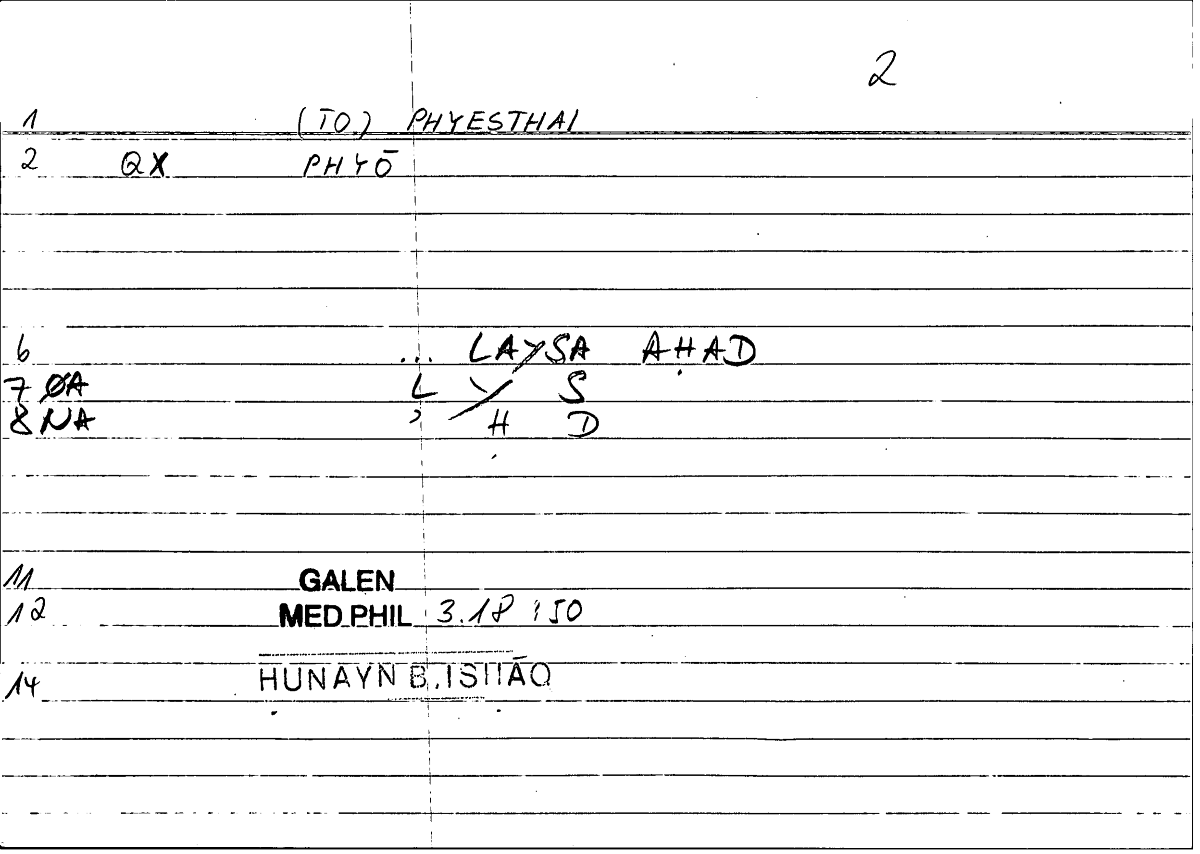 2
1 (TO) PHYESTHAI
2 QX PHYŌ
6 ... LAYSA AḤAD
7 ØA L Y S
8 NA ʾ Ḥ D
11 GALEN
12 MED PHIL 3.18 :50
14 ḤUNAYN B. ISḤĀQ